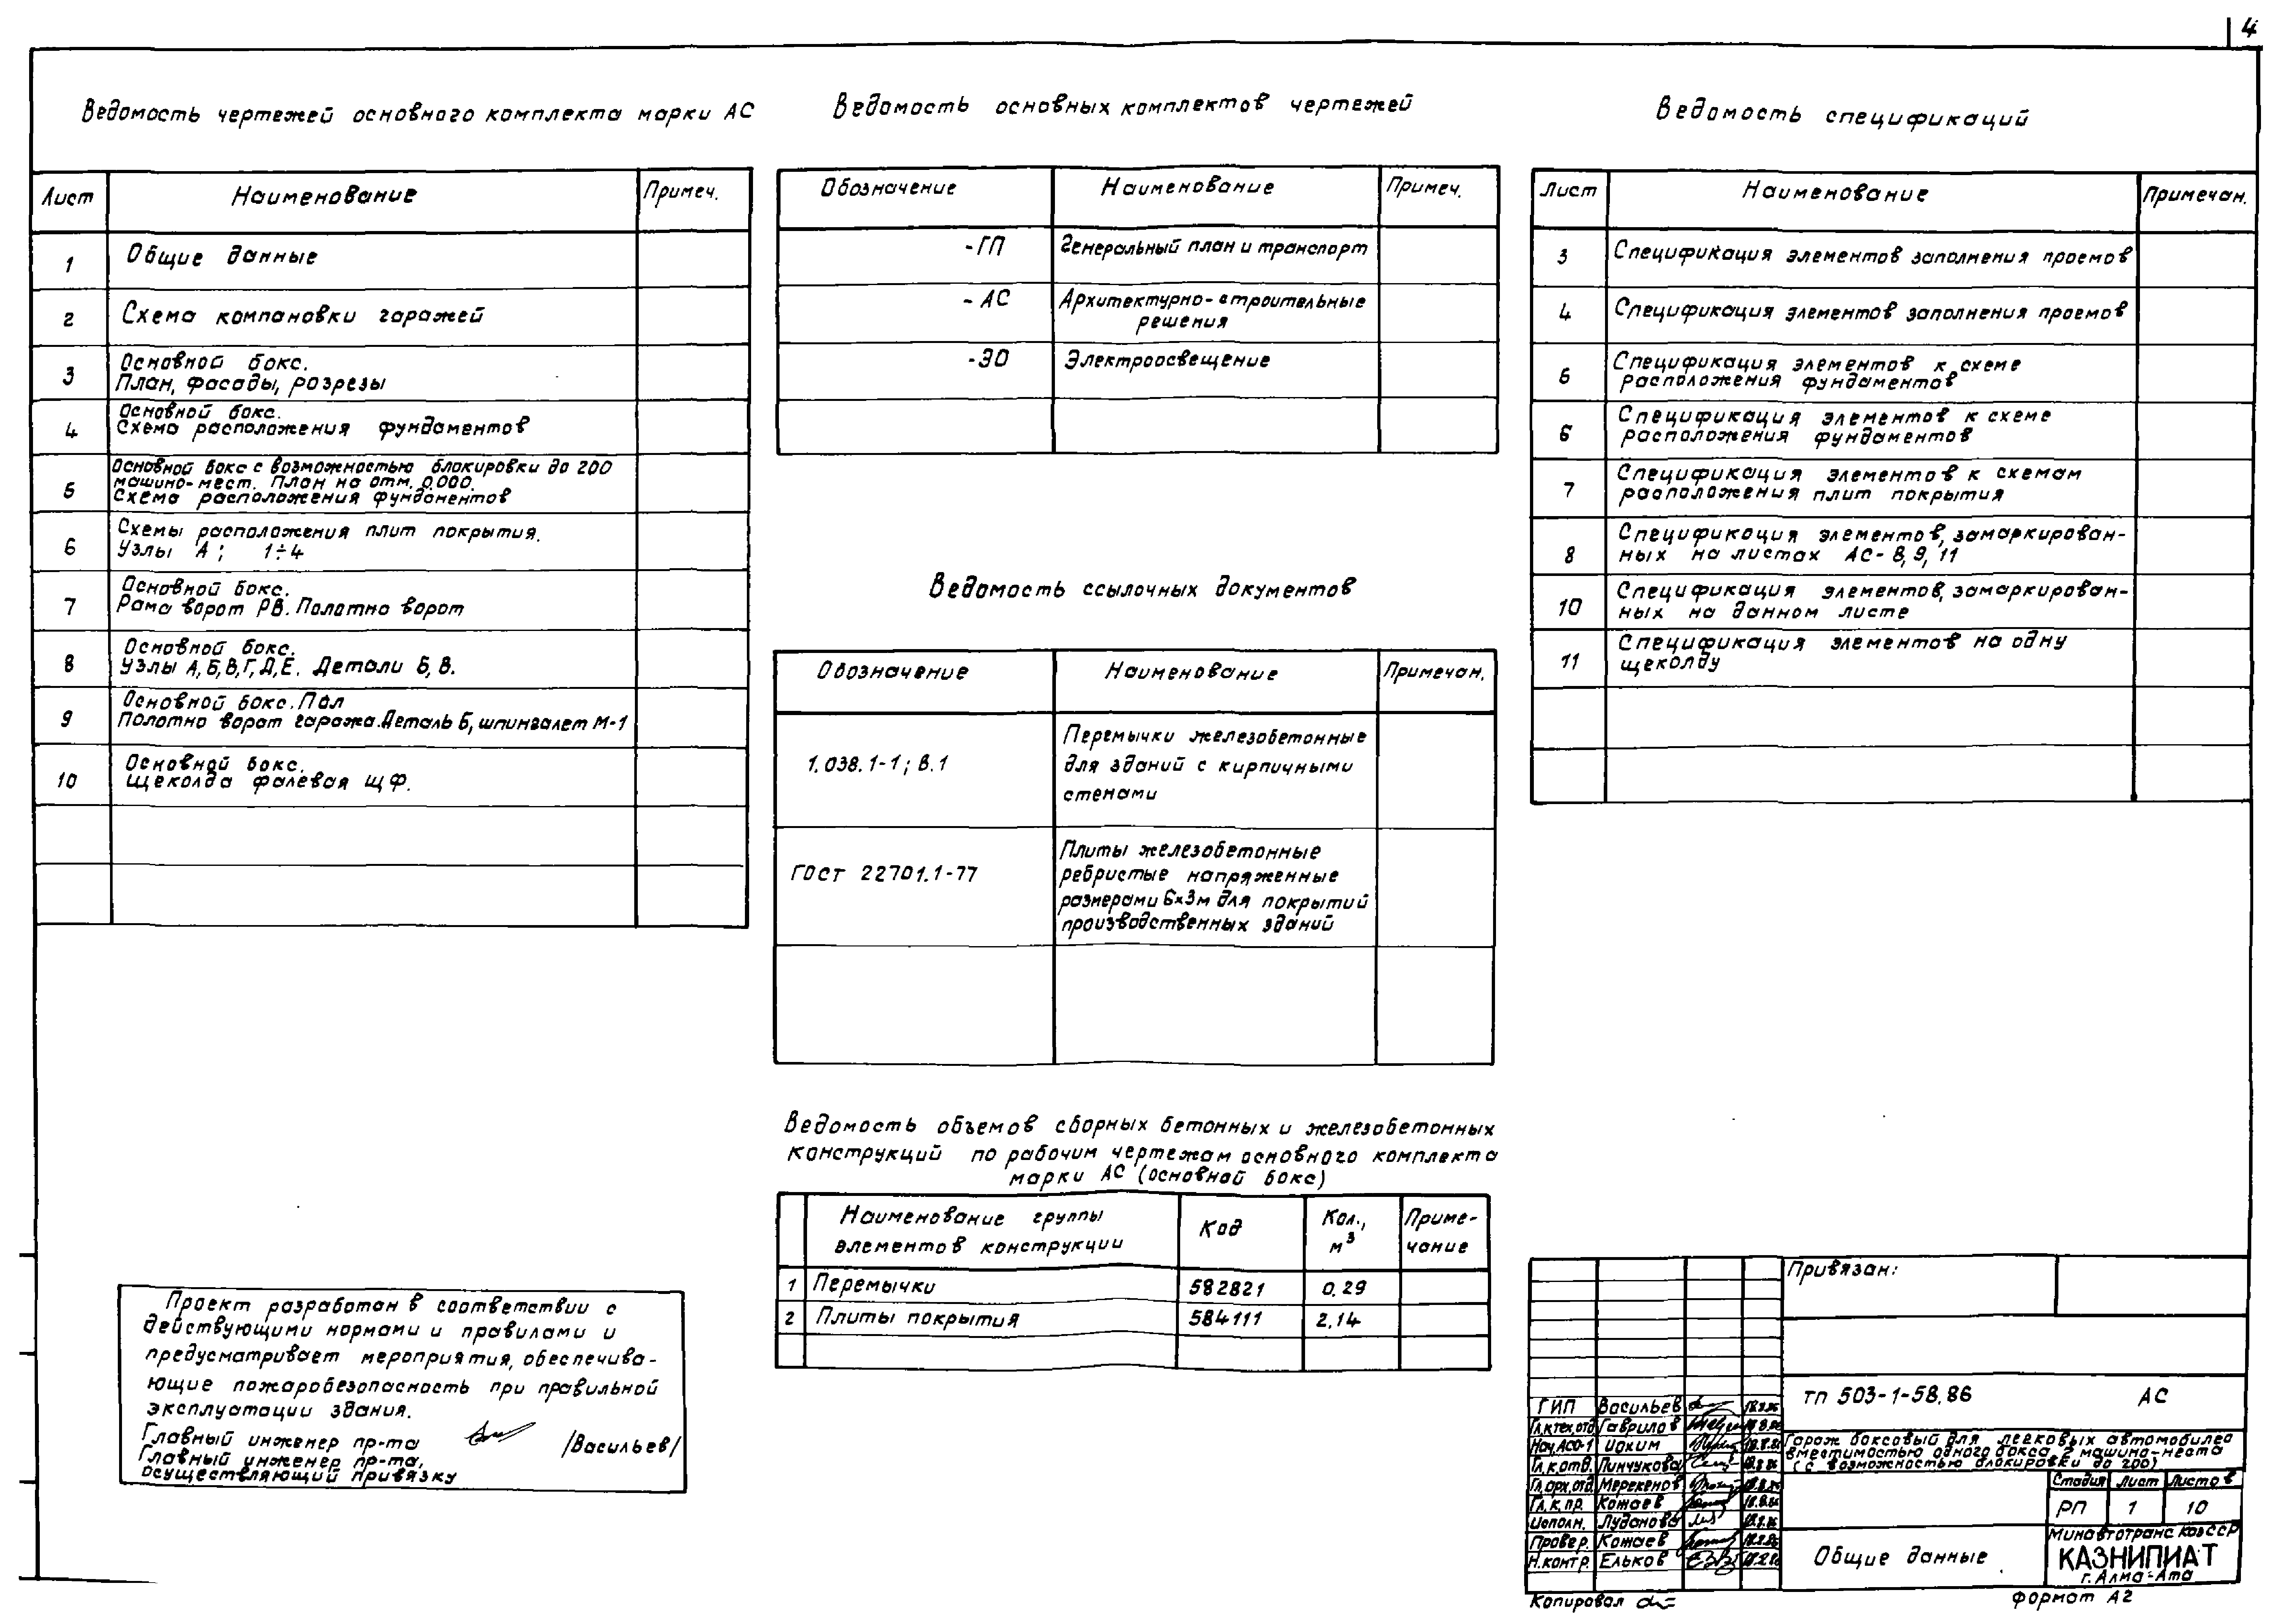 4
Ведомость чертежей основного комплекта марки АС
Лист Наименование Примеч.
1 Общие данные
2 Схема компановки гаражей
3 Основной бокс.
План, фасады, разрезы
4 Основной бокс.
Схема расположения фундаментов
5 Основной бокс с возможностью блокировки до 200
машино-мест. План на отм. 0.000.
Схема расположения фундаментов
6 Схемы расположения плит покрытия.
Узлы А; 1÷4
7 Основной бокс.
Рама ворот РВ. Полотно ворот
8 Основной бокс.
Узлы А,Б,В,Г,Д,Е. Детали Б,В.
9 Основной бокс. Пол
Полотно ворот гаража. Деталь Б, шпингалет М-1
10 Основной бокс.
Щеколда фалевая ЩФ.
Ведомость основных комплектов чертежей
Обозначение Наименование Примеч.
-ГП Генеральный план и транспорт
- АС Архитектурно-строительные
решения
-ЭО Электроосвещение
Ведомость ссылочных документов
Обозначение Наименование Примечан.
1.038.1-1; В.1 Перемычки железобетонные
для зданий с кирпичными
стенами
ГОСТ 22701.1-77 Плиты железобетонные
ребристые напряженные
размерами 6×3м для покрытий
производственных зданий
Ведомость объемов сборных бетонных и железобетонных
конструкций по рабочим чертежам основного комплекта
марки АС (основной бокс)
Наименование группы
элементов конструкции Код Кол., м³ Приме-
чание
1 Перемычки 582821 0.29
2 Плиты покрытия 584111 2.14
Ведомость спецификаций
Лист Наименование Примечан.
3 Спецификация элементов заполнения проемов
4 Спецификация элементов заполнения проемов
5 Спецификация элементов к схеме
расположения фундаментов
6 Спецификация элементов к схеме
расположения фундаментов
7 Спецификация элементов к схемам
расположения плит покрытия
8 Спецификация элементов, замаркирован-
ных на листах АС-8,9,11
10 Спецификация элементов, замаркирован-
ных на данном листе
11 Спецификация элементов на одну
щеколду
Проект разработан в соответствии с
действующими нормами и правилами и
предусматривает мероприятия, обеспечива-
ющие пожаробезопасность при правильной
эксплуатации здания.
Главный инженер пр-та /Васильев/
Главный инженер пр-та,
осуществляющий привязку
Привязан:
тп 503-1-58.86 АС
ГИП Васильев
Гл.к.тех.отд Гаврилов
Нач.АСО-1 Иохим
Гл.к.отв. Пинчукова
Гл.арх.отд Мерекенов
Гл.к.пр. Кожаев
Исполн. Луданова
Провер. Кожаев
Н.контр. Ельков
Гараж боксовый для легковых автомобилей
вместимостью одного бокса 2 машино-места
(с возможностью блокировки до 200)
Стадия Лист Листов
РП 1 10
Общие данные
Минавтотранс КазССР
КАЗНИПИАТ
г. Алма-Ата
Копировал
формат А2